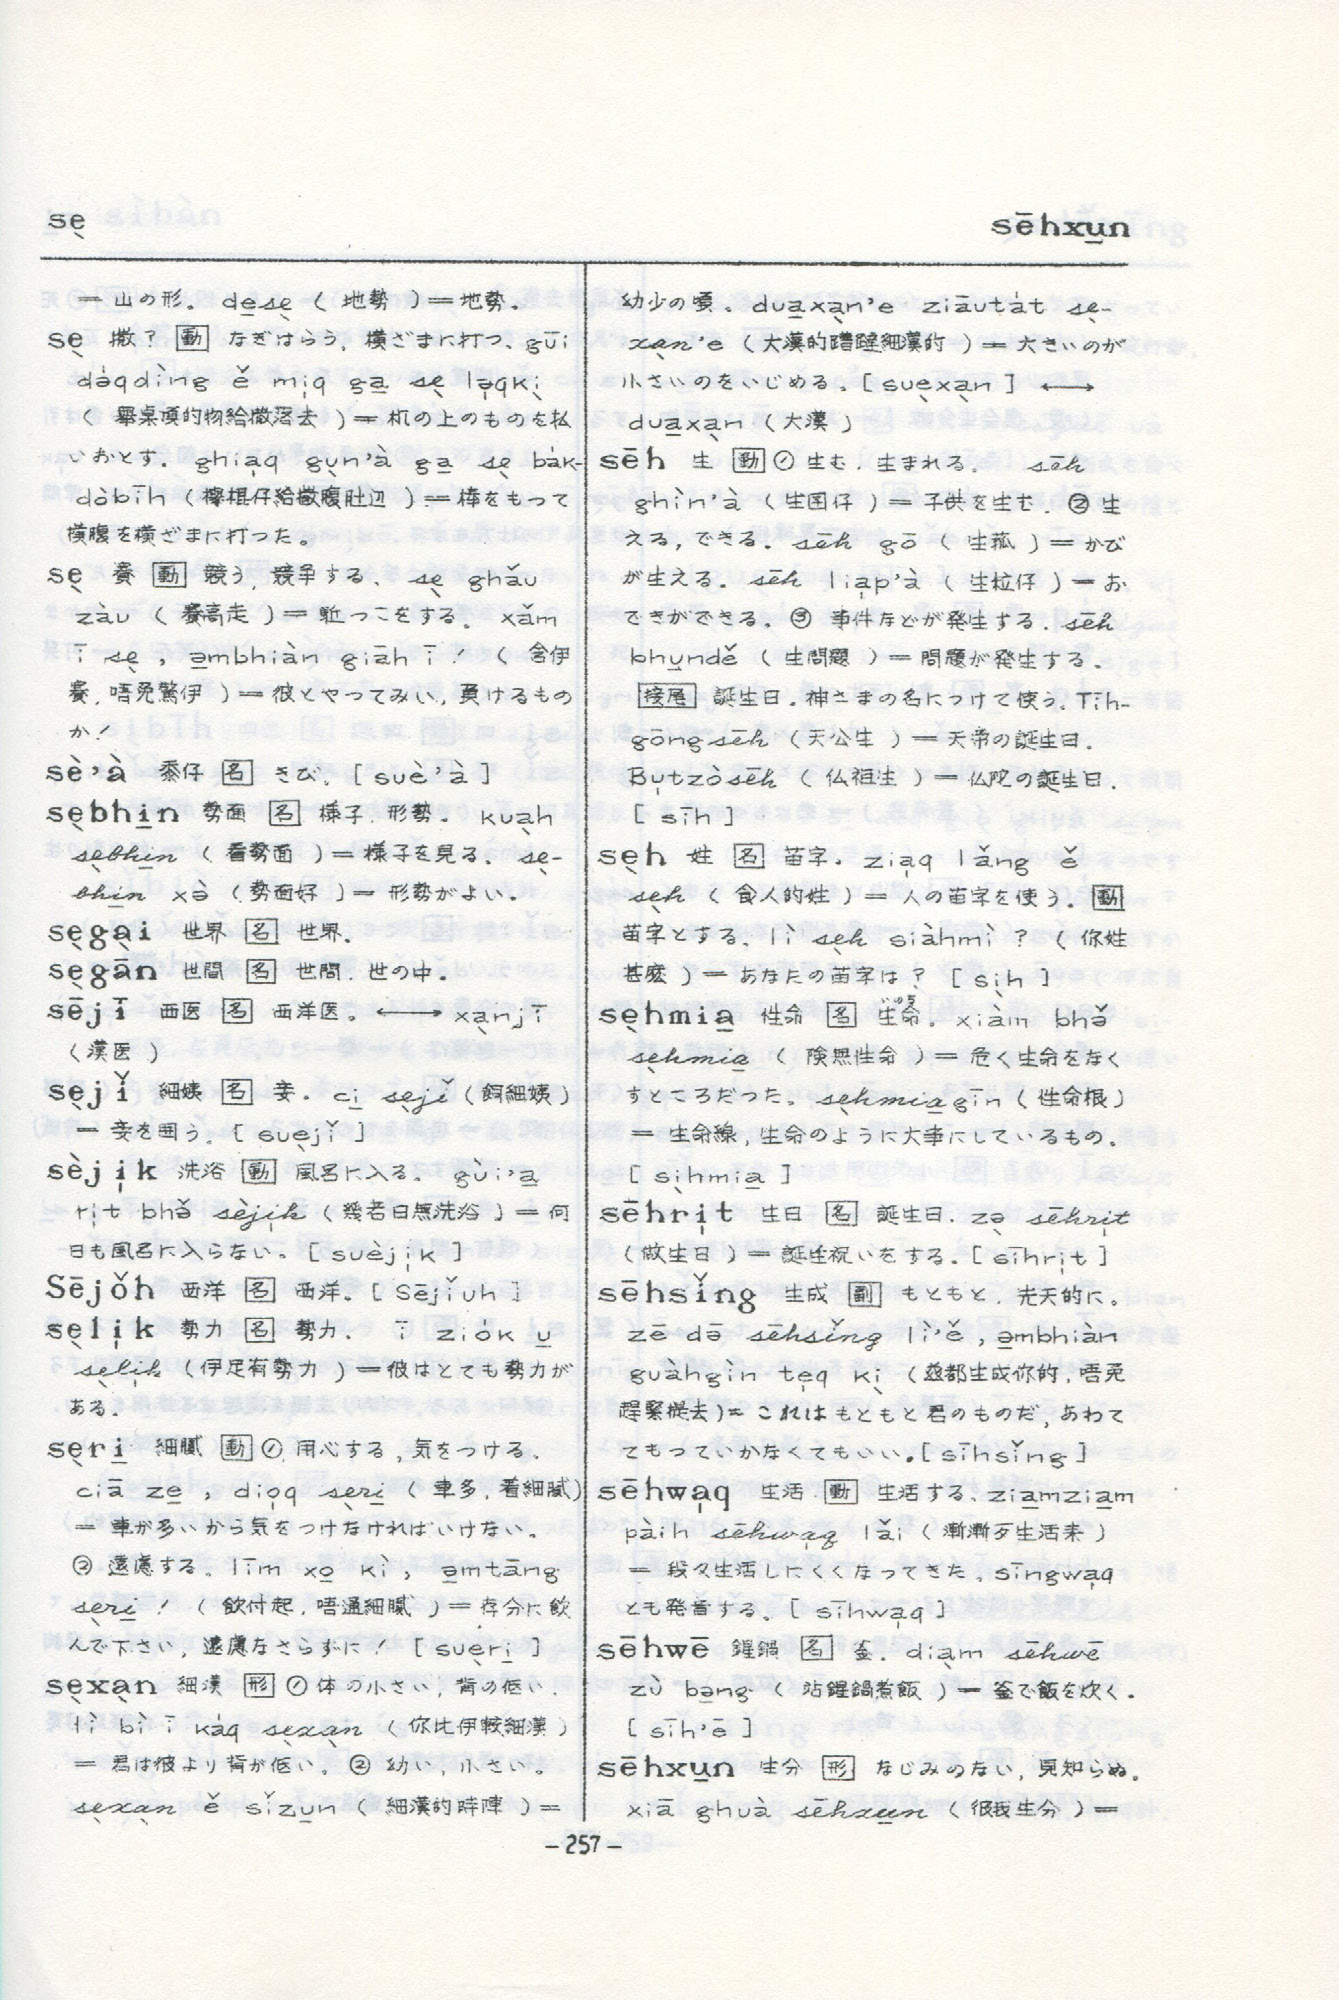 se̖
sēhxu̠n
＝山の形. de̠se̖ ( 地勢 )＝地勢.
se̖ 撒? 動 なぎはらう, 横ざまに打つ、gūi
dáqdìng ě mi̍q ga̠ se̖ lo̍qki̖
いおとす. ghia̍q gu̖n'à ga̠ se̖ bák-
dòbīh (
)＝棒をもって
横腹を横ざまに打った。
se̖ 賽 動 競う, 競争する. se̖ ghǎu
zàu ( 賽高走 )＝駈っこをする. xǎm
ī se̖, ə̠mbhiàn giāh ī! ( 含伊
賽, 唔免驚伊 )＝彼とやってみい, 負けるもの
か!
sè'à 黍仔 名 きび. [ suè'à ]
se̖bhi̠n 勢面 名 様子, 形勢. kua̖h
se̖bhi̠n ( 看勢面 )＝様子を見る. se̖-
bhi̠n xə̀ ( 勢面好 )＝形勢がよい.
se̖ga̖i 世界 名 世界.
se̖gān 世間 名 世間, 世の中.
sējī 西医 名 西洋医. ⟷ xa̖njī
( 漢医 )
se̖jǐ 細姨 名 妾. ci̠ se̖jǐ ( 飼細姨 )
＝妾を囲う. [ sue̖jǐ ]
sèji̍k 洗浴 動 風呂に入る. gùi'a̠
ri̍t bhə̌ sèji̍k (
)＝何
日も風呂に入らない. [ suèji̍k ]
Sējǒh 西洋 名 西洋. [ Sējǐuh ]
se̖li̍k 勢力 名 勢力. ī ziók u̠
se̖li̍k ( 伊足有勢力 )＝彼はとても勢力が
ある.
se̖ri̠ 細膩 動 ① 用心する, 気をつける.
ciā ze̠, dio̍q se̖ri̠ ( 車多, 着細膩)
＝車が多いから気をつけなければいけない.
② 遠慮する. līm xo̠ ki̖, ə̠mtāng
se̖ri̠! ( 飲付起, 唔通細膩 )＝存分に飲
んで下さい, 遠慮なさらずに! [ sue̖ri̠ ]
se̖xa̖n 細漢 形 ① 体の小さい, 背の低い.
lì bì ī káq se̖xa̖n ( 你比伊較細漢 )
＝君は彼より背が低い. ② 幼い, 小さい.
se̖xa̖n ě sǐzu̠n ( 細漢的時陣 )＝
幼少の頃. dua̠xa̖n'e ziāutát se̖-
xa̖n'e (
)＝大きいのが
小さいのをいじめる. [ sue̖xa̖n ] ⟷
dua̠xa̖n ( 大漢 )
sēh 生 動 ① 生む, 生まれる. sēh
ghìn'à ( 生囝仔 )＝子供を生む. ② 生
える, できる. sēh gō ( 生菰 )＝かび
が生える. sēh lia̍p'à ( 生粒仔 )＝お
できができる. ③ 事件などが発生する. sēh
bhu̠ndě ( 生問題 )＝問題が発生する.
接尾 誕生日. 神さまの名につけて使う. Tīh-
gōngsēh ( 天公生 )＝天帝の誕生日.
Bu̍tzòsēh ( 仏祖生 )＝仏陀の誕生日.
[ sīh ]
se̖h 姓 名 苗字. zia̍q lǎng ě
se̖h ( 食人的姓 )＝人の苗字を使う. 動
苗字とする. lì se̖h siàhmì? ( 你姓
甚麼 )＝あなたの苗字は? [ si̖h ]
se̖hmia̠ 性命 名 生命. xiàm bhə̌
いのち
se̖hmia̠ ( 険無性命 )＝危く生命をなく
すところだった. se̖hmia̠gīn ( 性命根 )
＝生命線, 生命のように大事にしているもの.
[ si̖hmia̠ ]
sēhri̍t 生日 名 誕生日. zə̖ sēhri̍t
( 做生日 )＝誕生祝いをする. [ sīhri̍t ]
sēhsǐng 生成 副 もともと, 先天的に.
zē də̄ sēhsǐng lì'ě, ə̠mbhiàn
guàhgìn te̍q ki̖ (
都生成你的, 唔免
趕緊
去)＝これはもともと君のものだ, あわて
てもっていかなくてもいい. [ sīhsǐng ]
sēhwa̍q 生活 動 生活する. zia̠mzia̠m
pàih sēhwa̍q lǎi ( 漸漸歹生活来 )
＝段々生活しにくくなってきた. sīngwa̍q
とも発音する. [ sīhwa̍q ]
sēhwē 鍟鍋 名 釜. dia̖m sēhwē
zù bə̠ng ( 站鍟鍋煮飯 )＝釜で飯を炊く.
[ sīh'ē ]
sēhxu̠n 生分 形 なじみのない, 見知らぬ.
xiā ghuà sēhxu̠n ( 彼我生分 )＝
－257－